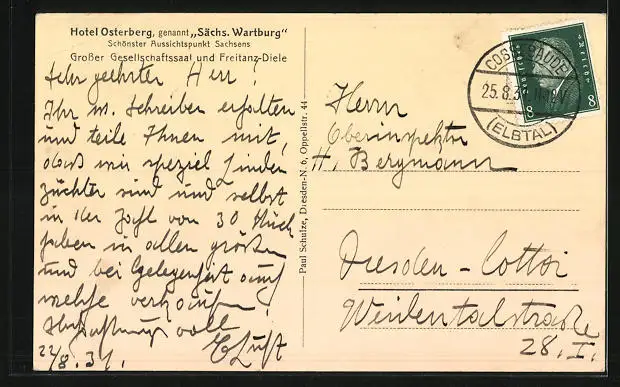 Hotel Osterberg, genannt „Sächs. Wartburg"
Schönster Aussichtspunkt Sachsens
Großer Gesellschaftssaal und Freitanz-Diele
Sehr geehrter Herr!
Ihr w. Schreiben erhalten
und teile Ihnen mit,
dass wir speziel
züchter sind und selbst
in der Zahl von 30 Stück
haben in allen größen
und bei Gelegenheit auch
welche verkaufen
Hochachtungsvoll
22/8.31.
Paul Schulze, Dresden-N. 6, Oppellstr. 44
COSSEBAUDE
25.8.3
(ELBTAL)
8 8
Herrn
Oberinspektor
H. Bergmann
Dresden-Cotta
Weidentalstrasse
28. I.